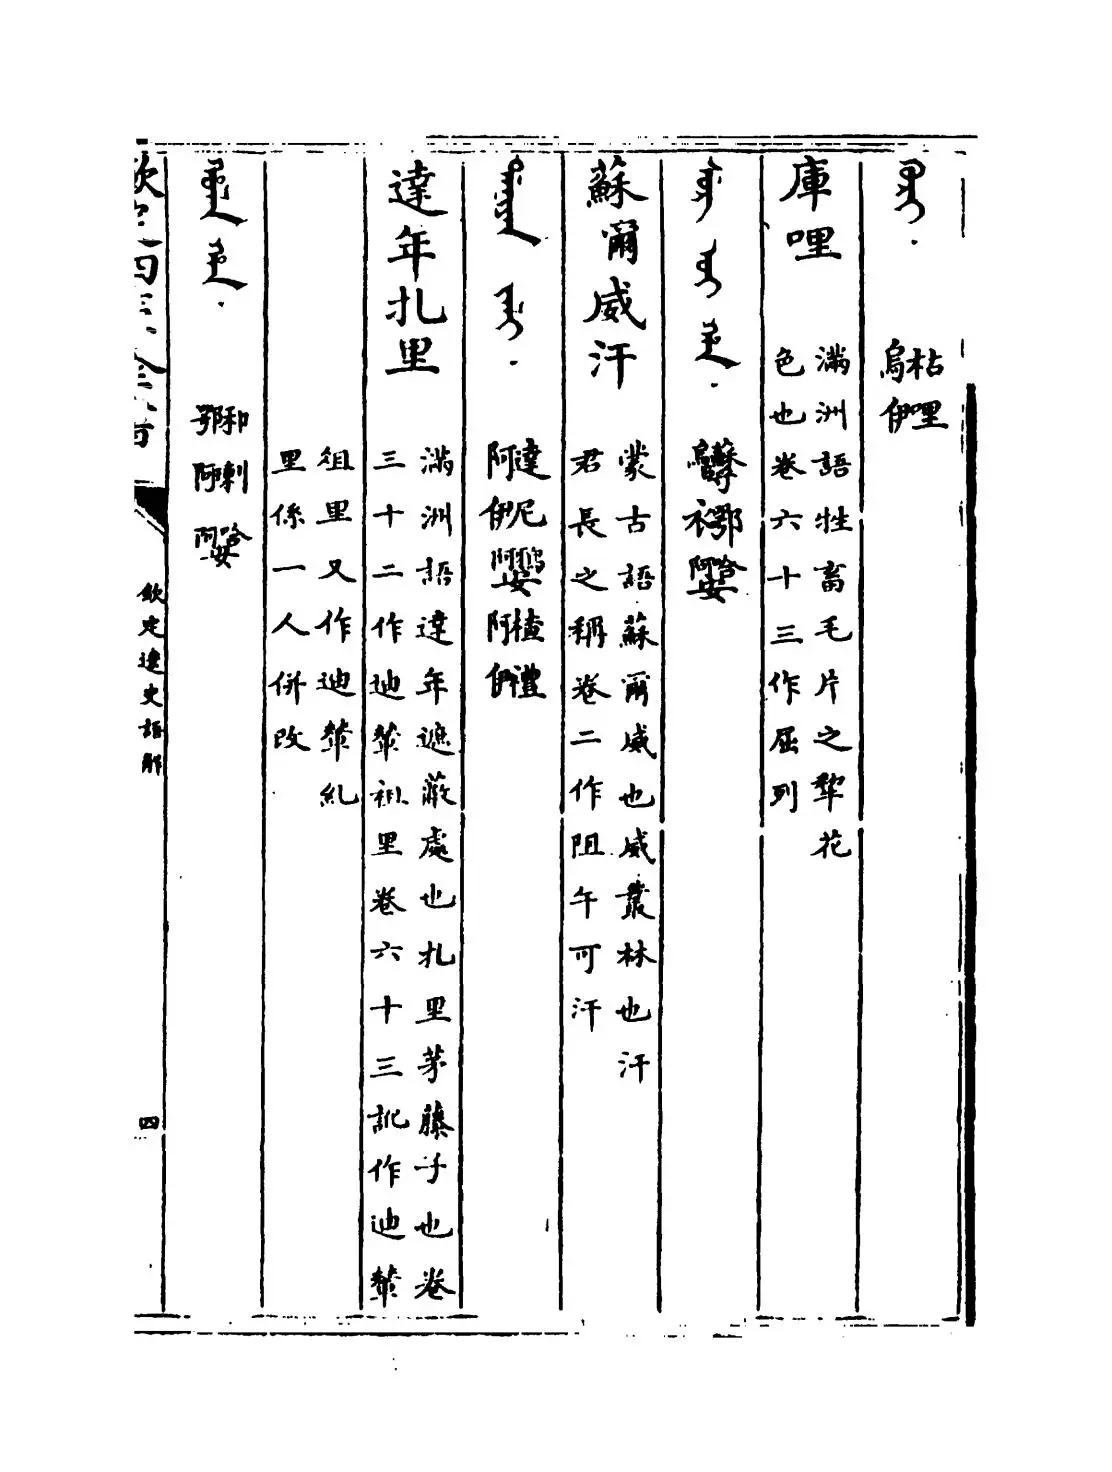 ᡴᡠᡵᡳ
枯哩
烏伊
庫哩
滿洲語牲畜毛片之犂花
色也卷六十三作屈列
蘇爾威汗
蒙古語蘇爾威也威叢林也汗
君長之稱卷二作阻午可汗
達尼 楂禮
阿伊 阿伊
達年扎里
滿洲語達年遮蔽處也扎里茅藤子也卷
三十二作迪輦祖里卷六十三訛作迪輦
俎里又作迪輦糺
里係一人併改
和喇哈
鄂阿阿安
欽定四庫全書
欽定遼史語解
四